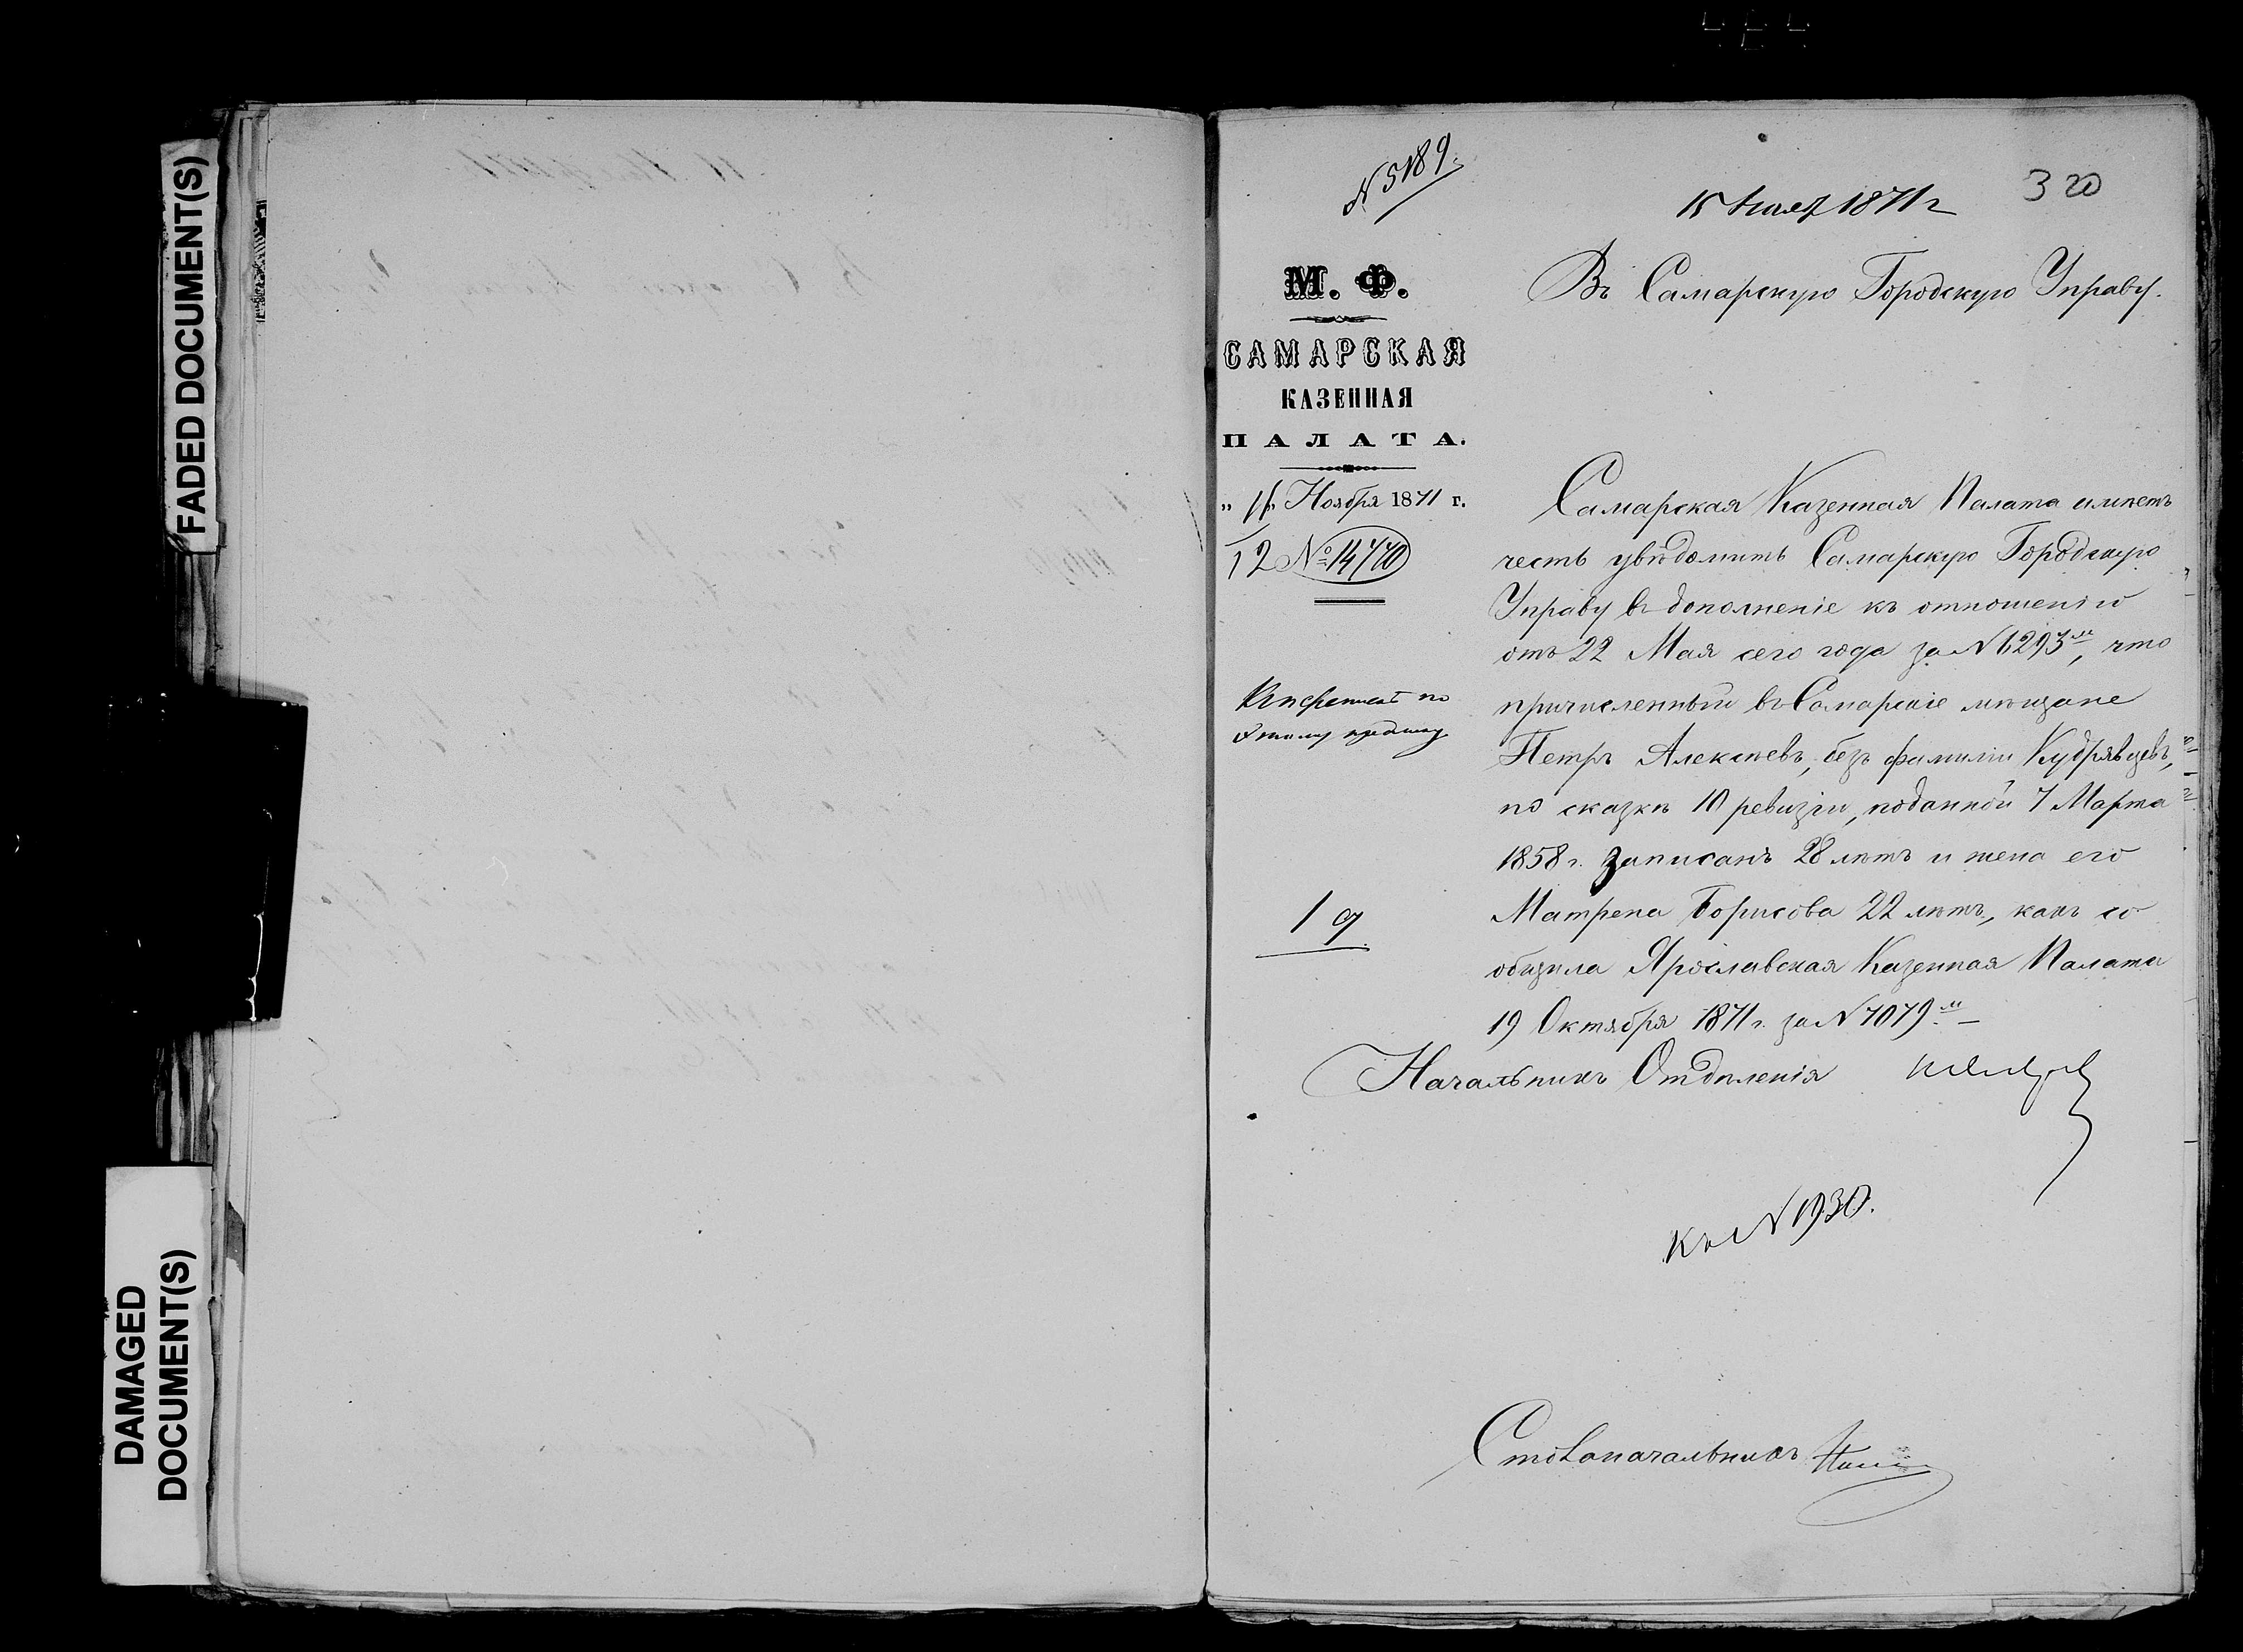 FADED DOCUMENT(S)
DAMAGED
DOCUMENT(S)
N 5189.
320
15 Нояб 1871 г
М. Ф.
САМАРСКАЯ
КАЗЕННАЯ
ПАЛАТА.
Ноября 1871 г.
12 № 14770
19
Въ Самарскую Городскую Управу.
Самарская Казенная Палата имѣетъ
честь увѣдомить Самарскую Городскую
Управу въ дополненіе къ отношенію
отъ 22 Мая сего года за N 6293м, что
причисленный въ Самарскіе мѣщане
Петръ Алексѣевъ, безъ фамиліи Кудрявцевъ,
по сказкѣ 10 ревизіи, поданной 7 Марта
1858 г. записанъ 28 лѣтъ и жена его
Матрена Борисова 22 лѣтъ, какъ со
общила Ярославская Казенная Палата
19 Октября 1871 г. за N 7079м
Начальникъ Отдѣленія
Къ N 1930.
Столоначальникъ